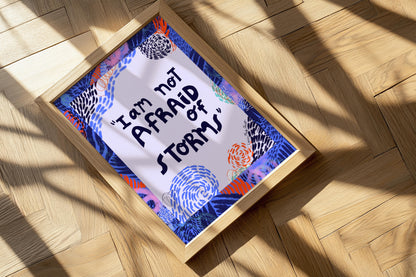 "I am NOT
AFRAID
OF
STORMS"